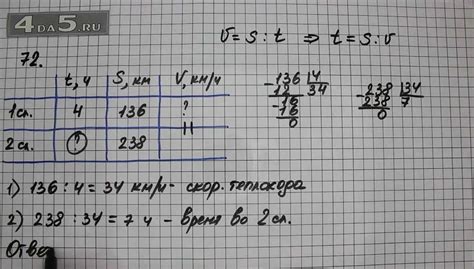 4DA5.RU
V = S : t ⇒ t = S : v
72.
t, ч S, км V, км/ч
1 сл. 4 136 ?
2 сл. ? 238 "
136 4
12 34
16
16
0
238 34
238 7
0
1) 136 : 4 = 34 км/ч - скор. теплохода
2) 238 : 34 = 7 ч - время во 2 сл.
Отве